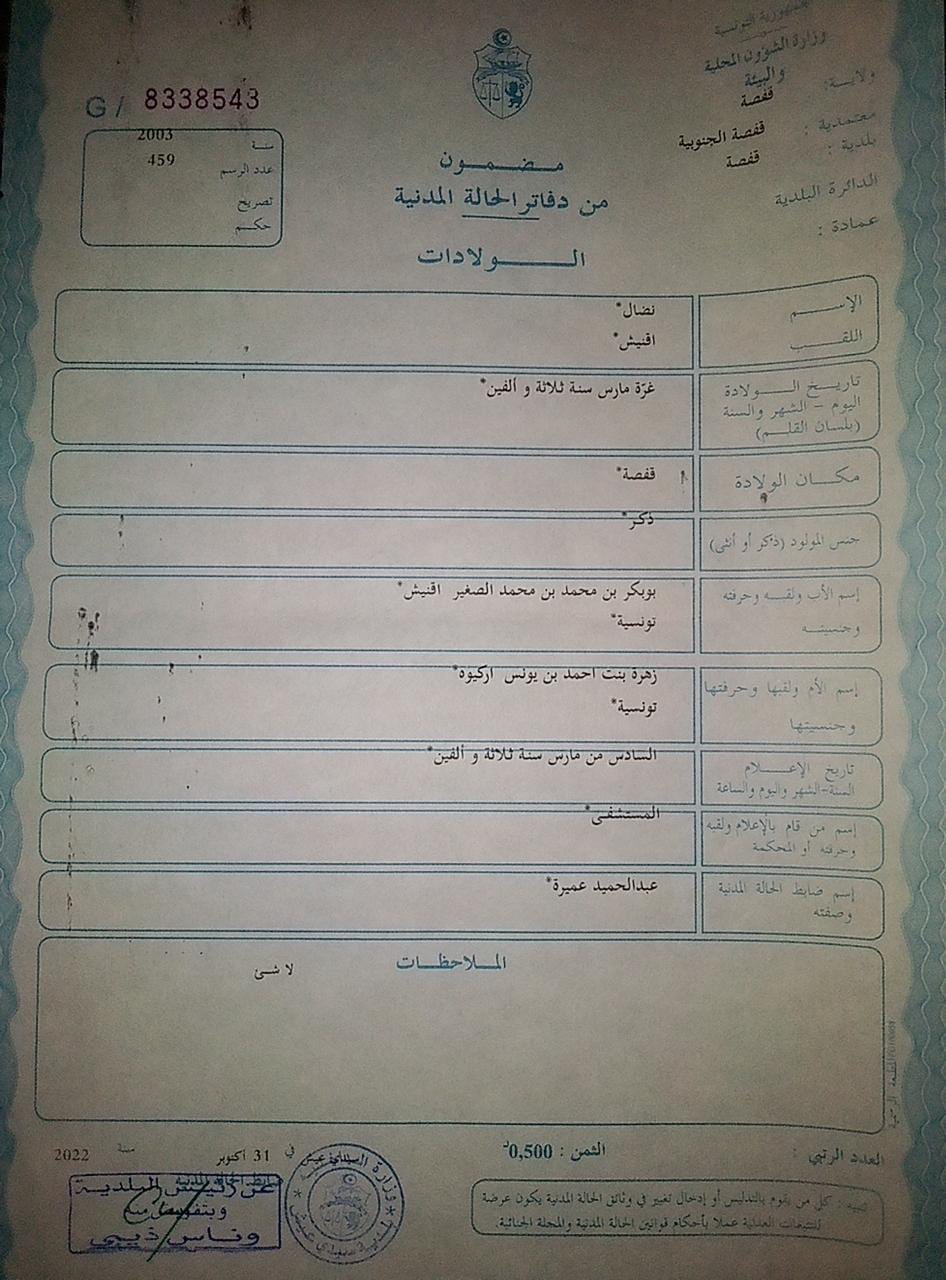 الجمهورية التونسية
وزارة الشؤون المحلية
والبيئة
ولاية: قفصة
معتمدية : قفصة الجنوبية
بلدية : قفصة
الدائرة البلدية
عمادة :
G / 8338543
سنة 2003
عدد الرسم 459
تصريح
حكم
مضمون
من دفاتر الحالة المدنية
الولادات
الإسم نضال*
اللقب اقنيش*
تاريخ الولادة غرّة مارس سنة ثلاثة و ألفين*
اليوم - الشهر والسنة
(بلسان القلم)
مكان الولادة قفصة*
جنس المولود (ذكر أو أنثى) ذكر*
إسم الأب ولقبه وحرفته بوبكر بن محمد بن محمد الصغير اقنيش*
وجنسيته تونسية*
إسم الأم ولقبها وحرفتها زهرة بنت احمد بن يونس اركيوة*
وجنسيتها تونسية*
تاريخ الإعلام السادس من مارس سنة ثلاثة و ألفين*
السنة-الشهر واليوم والساعة
إسم من قام بالإعلام ولقبه المستشفى*
وحرفته أو المحكمة
إسم ضابط الحالة المدنية عبدالحميد عميرة*
وصفته
الملاحظات
لا شئ
المطبعة الرسمية
العدد الرتبي :
الثمن : 0,500د
في 31 أكتوبر سنة 2022
تنبيه : كل من يقوم بالتدليس أو إدخال تغيير في وثائق الحالة المدنية يكون عرضة
للتتبعات العدلية عملا بأحكام قوانين الحالة المدنية والمجلة الجنائية.
ضابط الحالة المدنية
عن رئيس البلدية
وبتفويض منه
وناس ذيبي